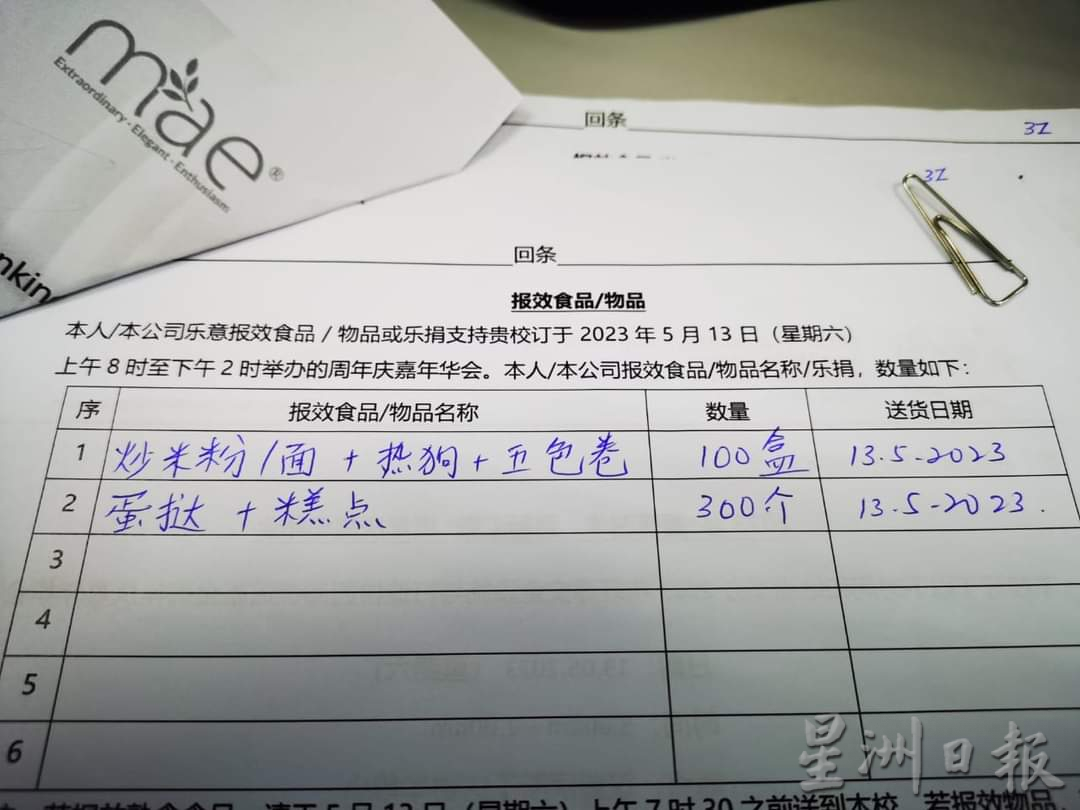 mae®
Extraordinary · Elegant · Enthusiasm
nkin
回条
31
31
回条
报效食品/物品
本人/本公司乐意报效食品 / 物品或乐捐支持贵校订于 2023 年 5 月 13 日（星期六）
上午 8 时至下午 2 时举办的周年庆嘉年华会。本人/本公司报效食品/物品名称/乐捐，数量如下：
序 报效食品/物品名称 数量 送货日期
1 炒米粉/面 + 热狗 + 五色卷 100盒 13.5-2023
2 蛋挞 + 糕点 300个 13.5-2023.
3
4
5
6
星洲日报
若报效熟食食品，请于 5 月 13 日（星期六）上午 7 时 30 之前送到本校，若报效物品，